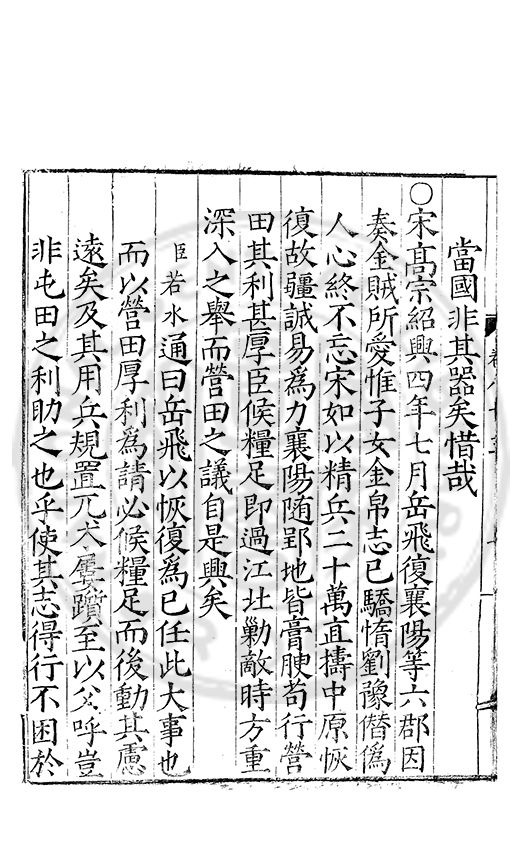 當國非其器矣惜哉
○宋高宗紹興四年七月岳飛復襄陽等六郡因
奏金賊所愛惟子女金帛志已驕惰劉豫僭僞
人心終不忘宋如以精兵二十萬直擣中原恢
復故疆誠易爲力襄陽随郢地皆膏腴苟行營
田其利甚厚臣候糧足即過江北勦敵時方重
深入之舉而營田之議自是興矣
臣若水通曰岳飛以恢復爲己任此大事也
而以營田厚利爲請必候糧足而後動其慮
遠矣及其用兵規置兀朮屢躓至以父呼豈
非屯田之利助之也乎使其志得行不困於